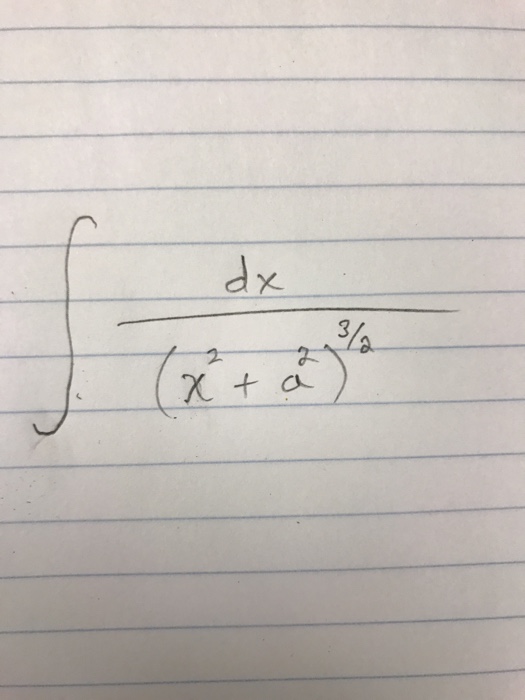 ∫ dx
(x² + a²)^3/2